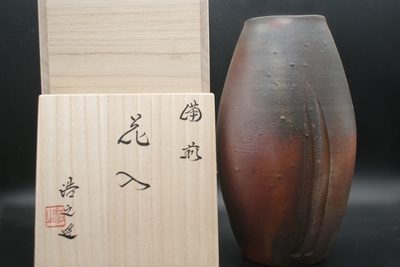 備前
花入
浩之造